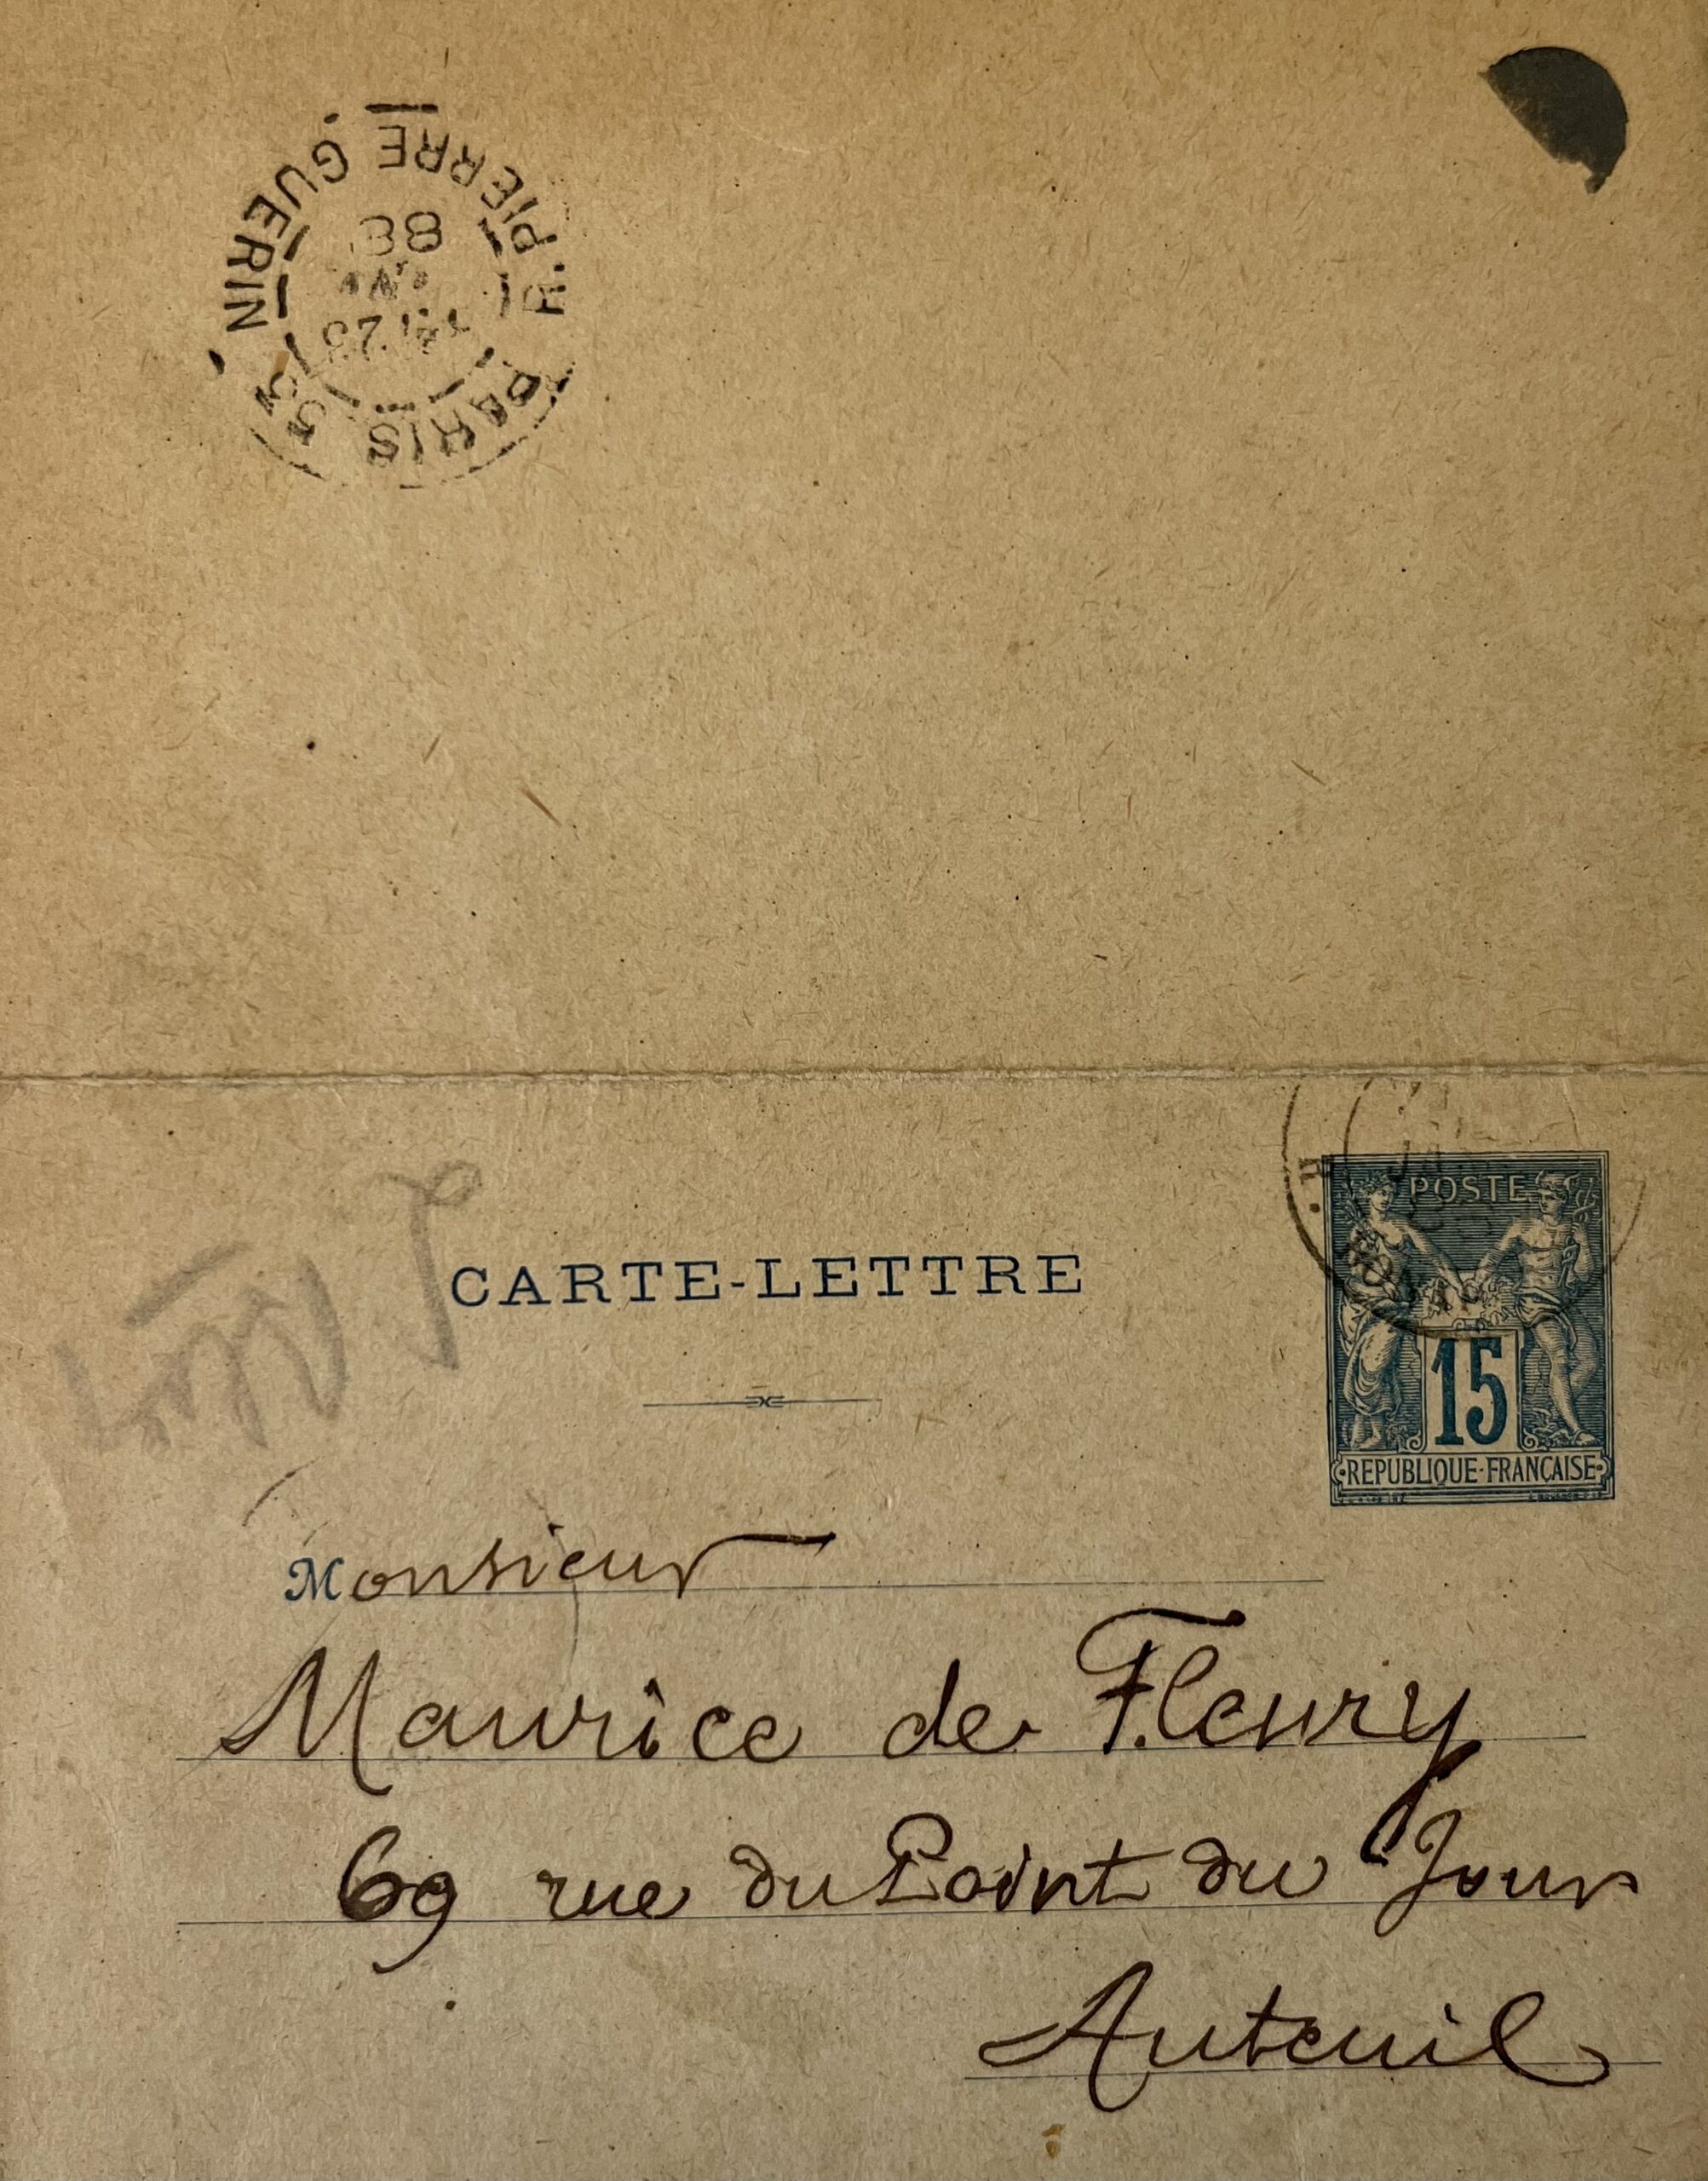 R. PIERRE GUERIN
PARIS
88
CARTE-LETTRE
POSTE
15
REPUBLIQUE·FRANÇAISE
Monsieur
Maurice de Fleury
69 rue du Point du Jour
Auteuil